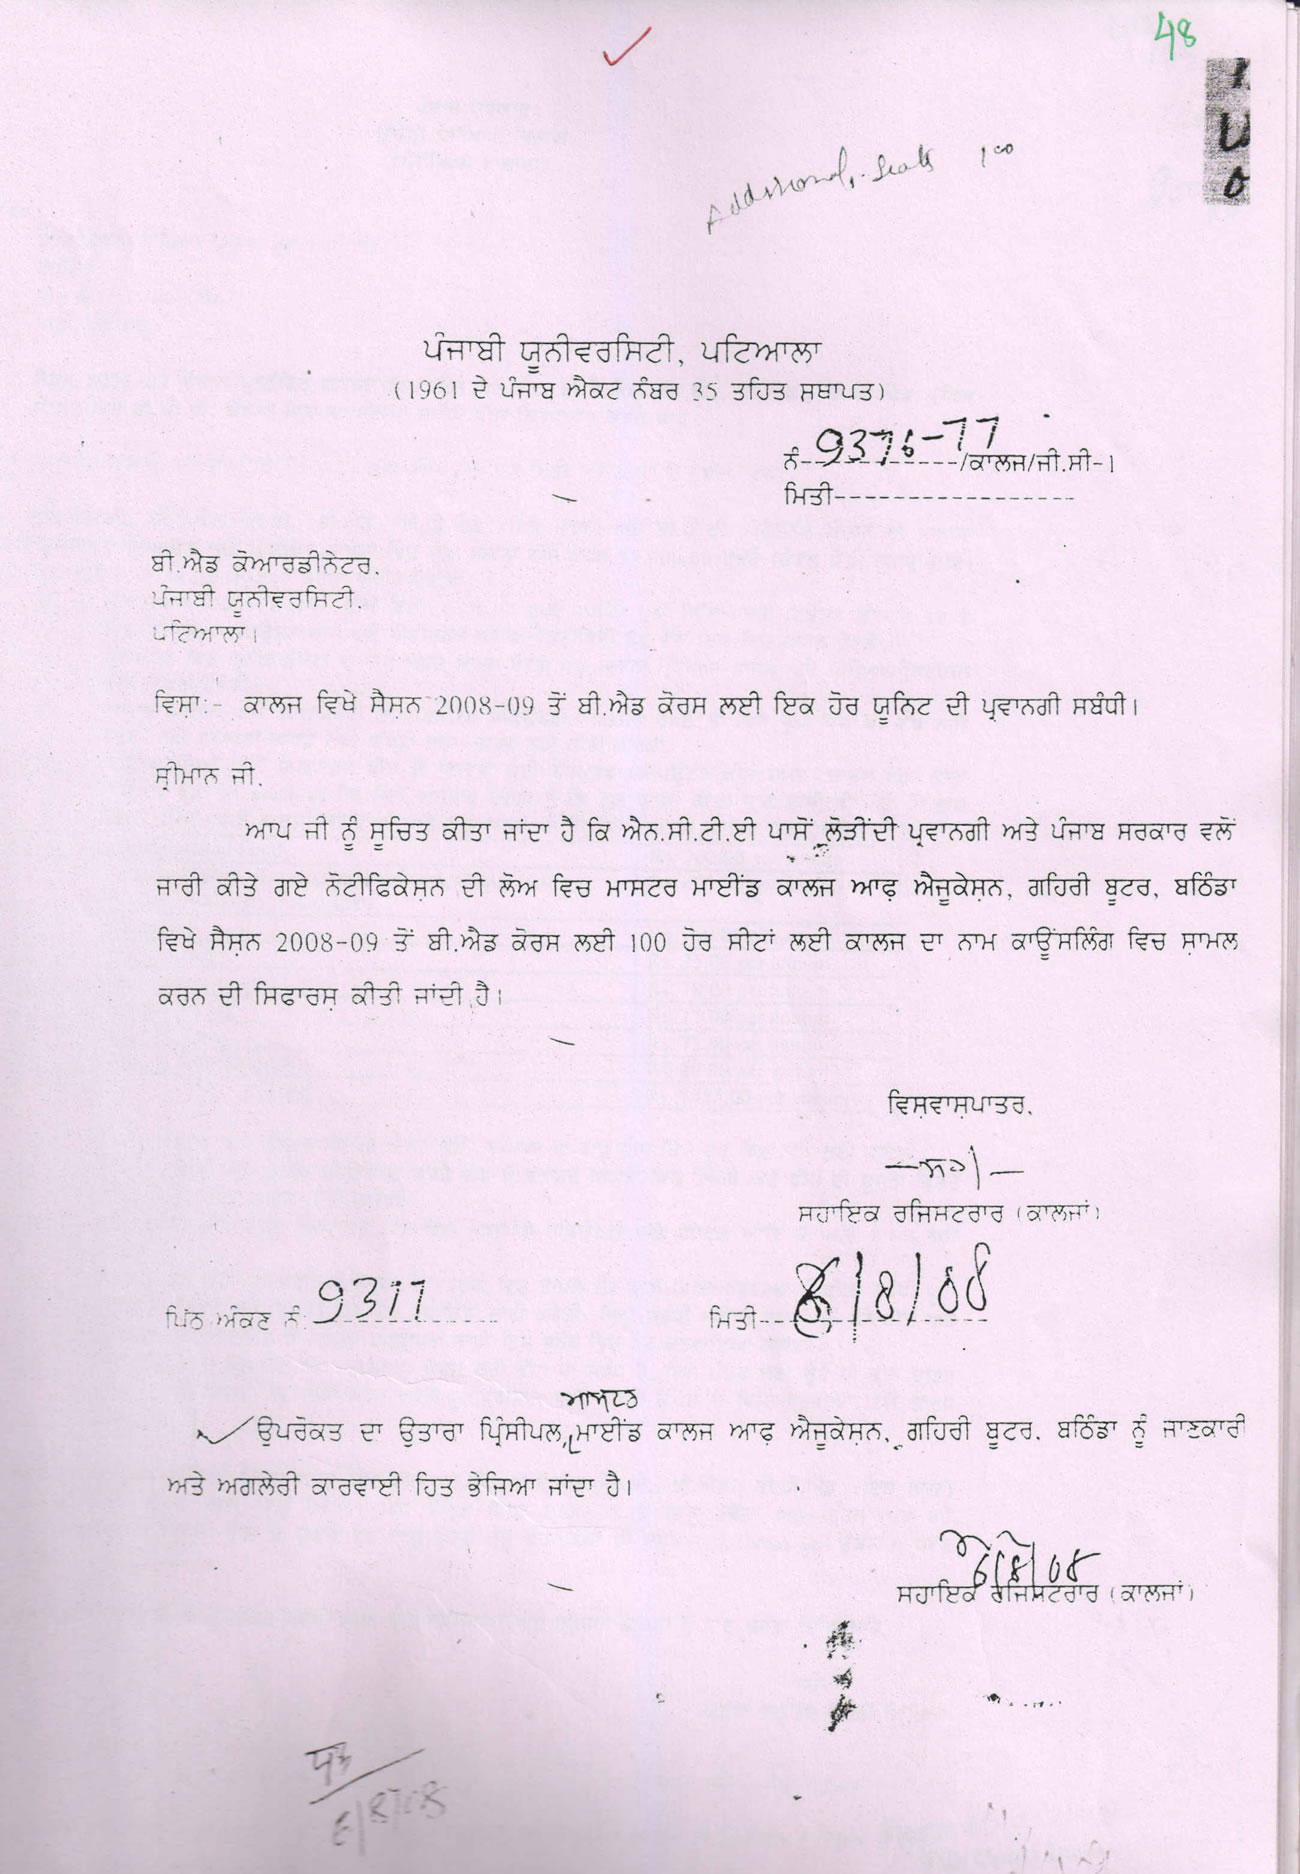 48
Additional. Seats 100
ਪੰਜਾਬੀ ਯੂਨੀਵਰਸਿਟੀ, ਪਟਿਆਲਾ
(1961 ਦੇ ਪੰਜਾਬ ਐਕਟ ਨੰਬਰ 35 ਤਹਿਤ ਸਥਾਪਤ)
ਨੰ-9376-77-/ਕਾਲਜ/ਜੀ.ਸੀ-1
ਮਿਤੀ-----------------
ਬੀ.ਐਡ ਕੋਆਰਡੀਨੇਟਰ,
ਪੰਜਾਬੀ ਯੂਨੀਵਰਸਿਟੀ,
ਪਟਿਆਲਾ।
ਵਿਸ਼ਾ:- ਕਾਲਜ ਵਿਖੇ ਸੈਸ਼ਨ 2008-09 ਤੋਂ ਬੀ.ਐਡ ਕੋਰਸ ਲਈ ਇਕ ਹੋਰ ਯੂਨਿਟ ਦੀ ਪ੍ਰਵਾਨਗੀ ਸਬੰਧੀ।
ਸ੍ਰੀਮਾਨ ਜੀ,
ਆਪ ਜੀ ਨੂੰ ਸੂਚਿਤ ਕੀਤਾ ਜਾਂਦਾ ਹੈ ਕਿ ਐਨ.ਸੀ.ਟੀ.ਈ ਪਾਸੋਂ ਲੋੜੀਂਦੀ ਪ੍ਰਵਾਨਗੀ ਅਤੇ ਪੰਜਾਬ ਸਰਕਾਰ ਵਲੋਂ
ਜਾਰੀ ਕੀਤੇ ਗਏ ਨੋਟੀਫਿਕੇਸ਼ਨ ਦੀ ਲੋਅ ਵਿਚ ਮਾਸਟਰ ਮਾਈਂਡ ਕਾਲਜ ਆਫ਼ ਐਜੂਕੇਸ਼ਨ, ਗਹਿਰੀ ਬੂਟਰ, ਬਠਿੰਡਾ
ਵਿਖੇ ਸੈਸ਼ਨ 2008-09 ਤੋਂ ਬੀ.ਐਡ ਕੋਰਸ ਲਈ 100 ਹੋਰ ਸੀਟਾਂ ਲਈ ਕਾਲਜ ਦਾ ਨਾਮ ਕਾਊਂਸਲਿੰਗ ਵਿਚ ਸ਼ਾਮਲ
ਕਰਨ ਦੀ ਸਿਫਾਰਸ਼ ਕੀਤੀ ਜਾਂਦੀ ਹੈ।
ਵਿਸ਼ਵਾਸ਼ਪਾਤਰ,
—ਸਹ/—
ਸਹਾਇਕ ਰਜਿਸਟਰਾਰ (ਕਾਲਜਾਂ)
ਪਿੱਠ ਅੰਕਣ ਨੰ: 9377 ਮਿਤੀ--8/8/08
ਮਾਸਟਰ
ਉਪਰੋਕਤ ਦਾ ਉਤਾਰਾ ਪ੍ਰਿੰਸੀਪਲ, ਮਾਈਂਡ ਕਾਲਜ ਆਫ਼ ਐਜੂਕੇਸ਼ਨ, ਗਹਿਰੀ ਬੂਟਰ, ਬਠਿੰਡਾ ਨੂੰ ਜਾਣਕਾਰੀ
ਅਤੇ ਅਗਲੇਰੀ ਕਾਰਵਾਈ ਹਿਤ ਭੇਜਿਆ ਜਾਂਦਾ ਹੈ।
6/8/08
ਸਹਾਇਕ ਰਜਿਸਟਰਾਰ (ਕਾਲਜਾਂ)
6/8/08